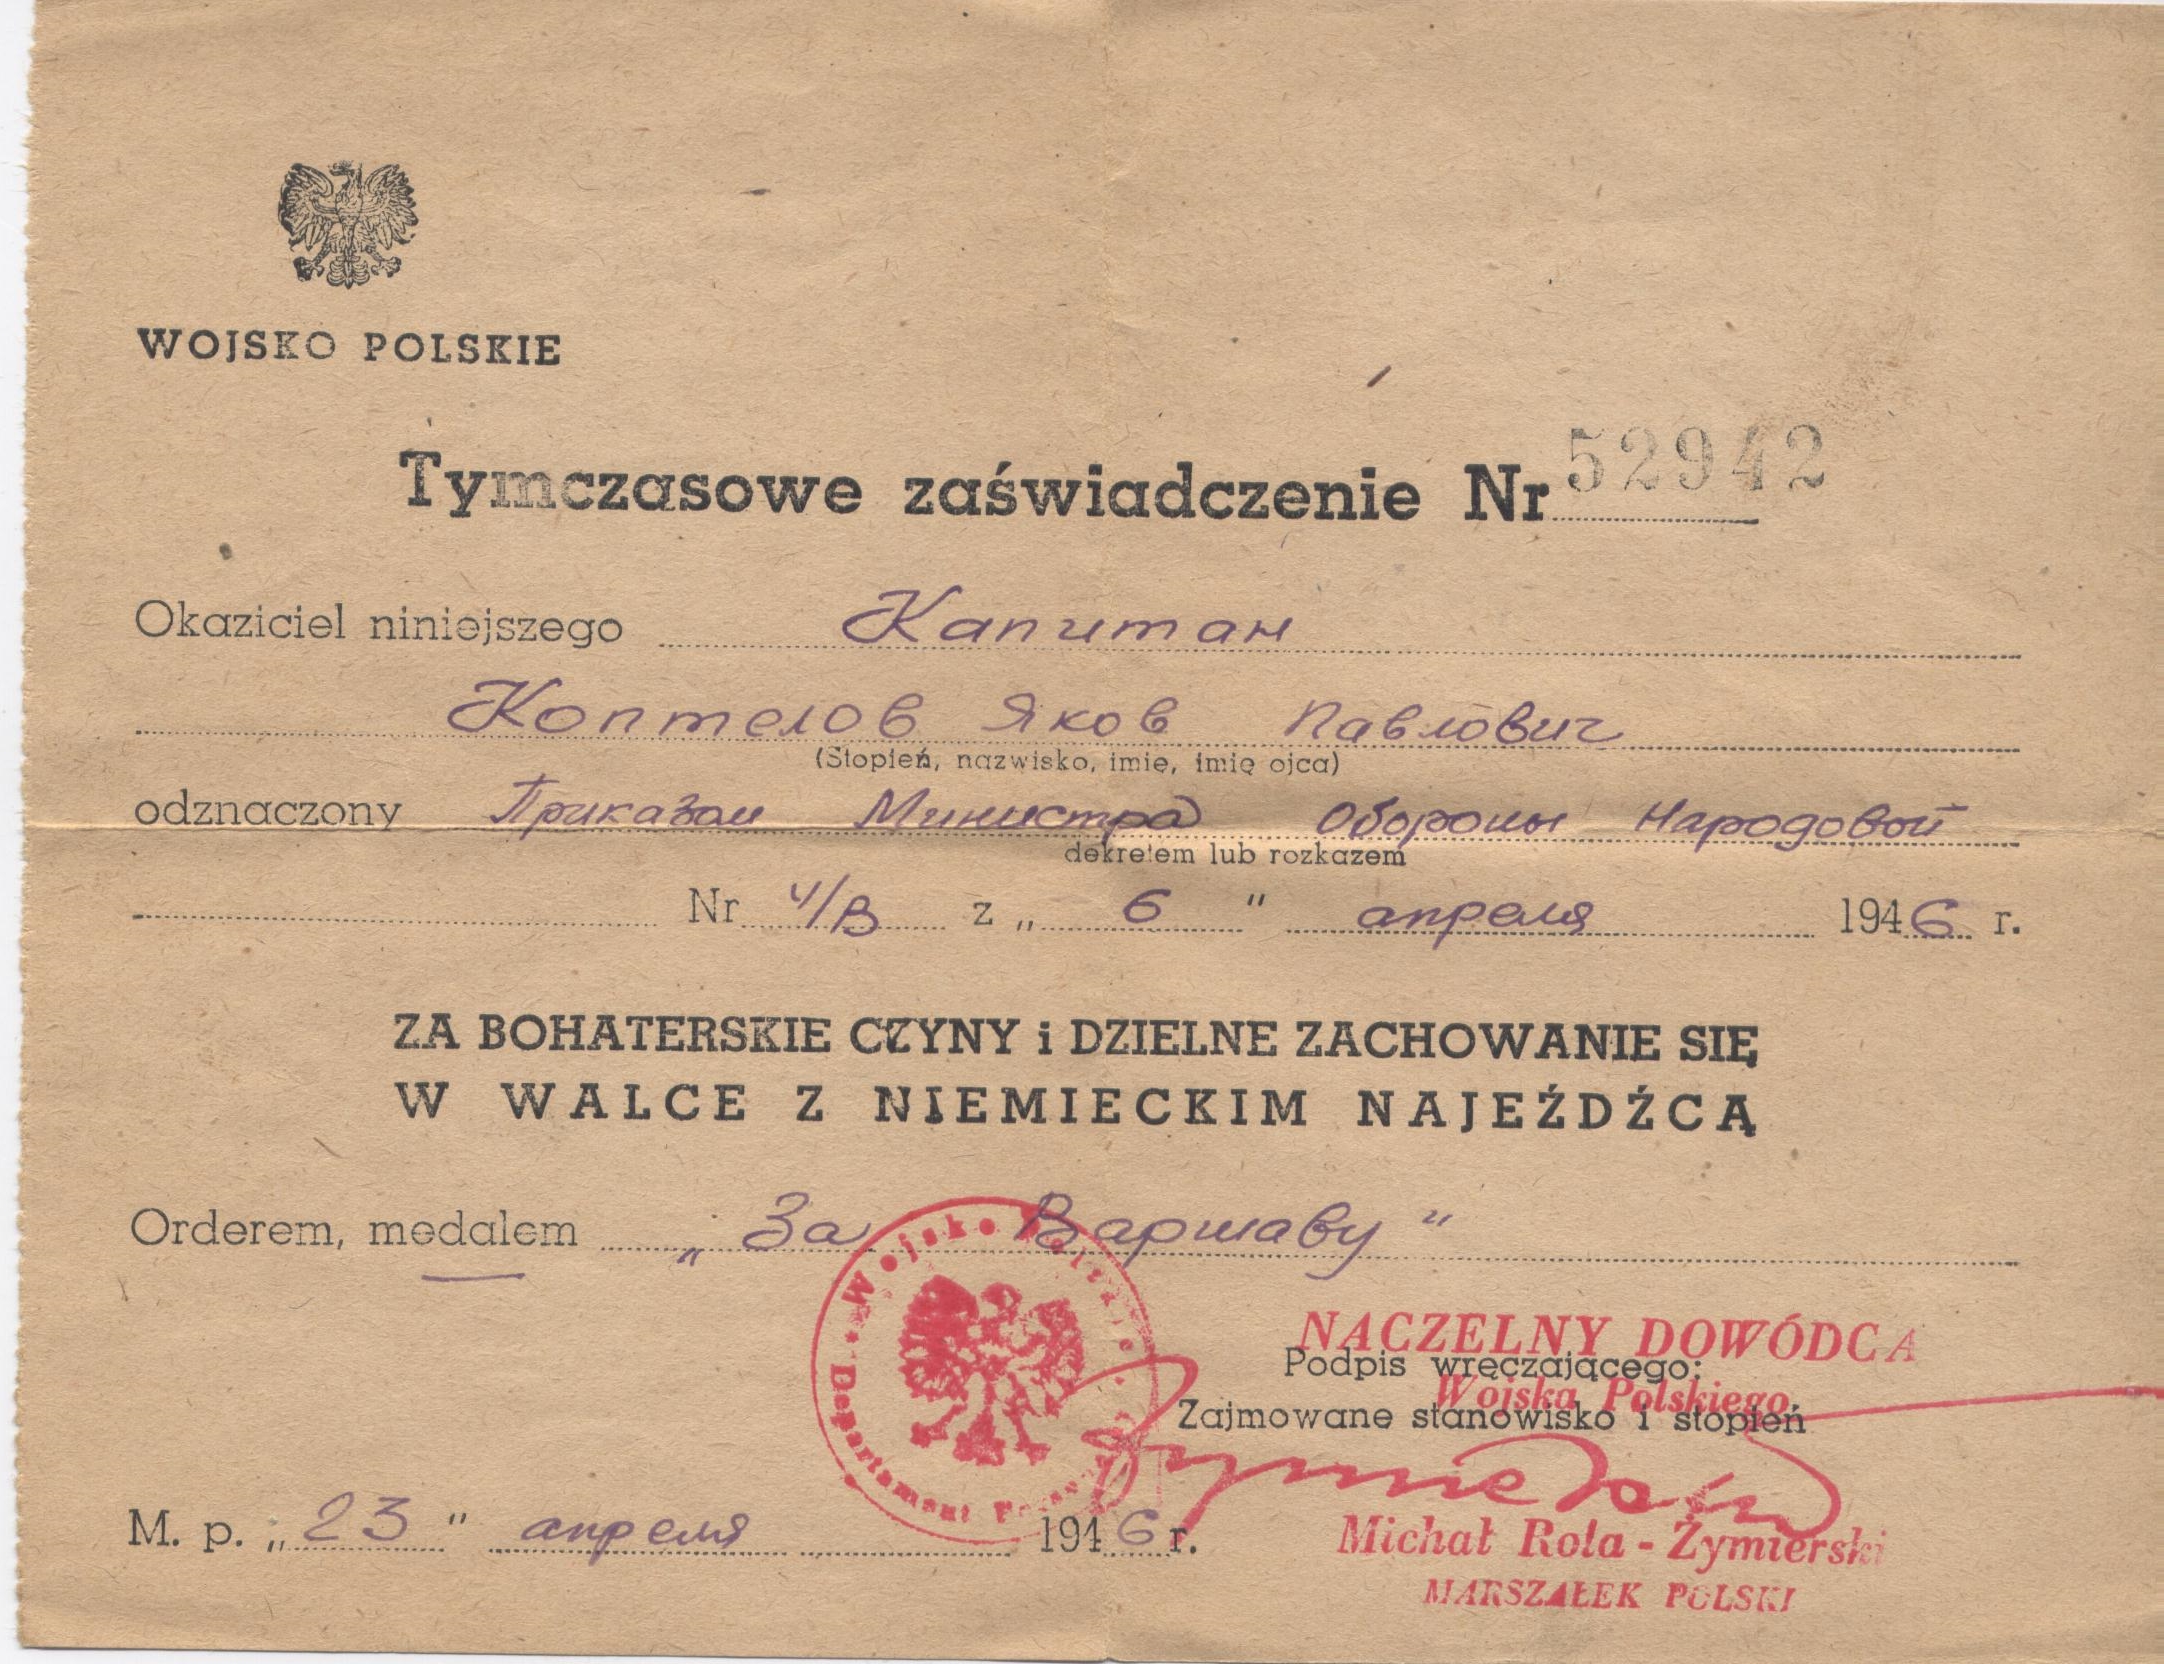 WOJSKO POLSKIE
Tymczasowe zaświadczenie Nr 52942
Okaziciel niniejszego Капитан
Коптелов Яков Павлович
(Stopień, nazwisko, imię, imię ojca)
odznaczony Приказом Министра Обороны Народовой
dekretem lub rozkazem
Nr 4/В z „ 6 " апреля 1946 r.
ZA BOHATERSKIE CZYNY i DZIELNE ZACHOWANIE SIĘ
W WALCE Z NIEMIECKIM NAJEŹDŹCĄ
Orderem, medalem „За Варшаву"
Wojsko Polskie
Departament
NACZELNY DOWÓDCA
Podpis wręczającego:
Wojska Polskiego
Zajmowane stanowisko i stopień
M. p. „23" апреля 1946 r.
Michał Rola - Żymierski
MARSZAŁEK POLSKI